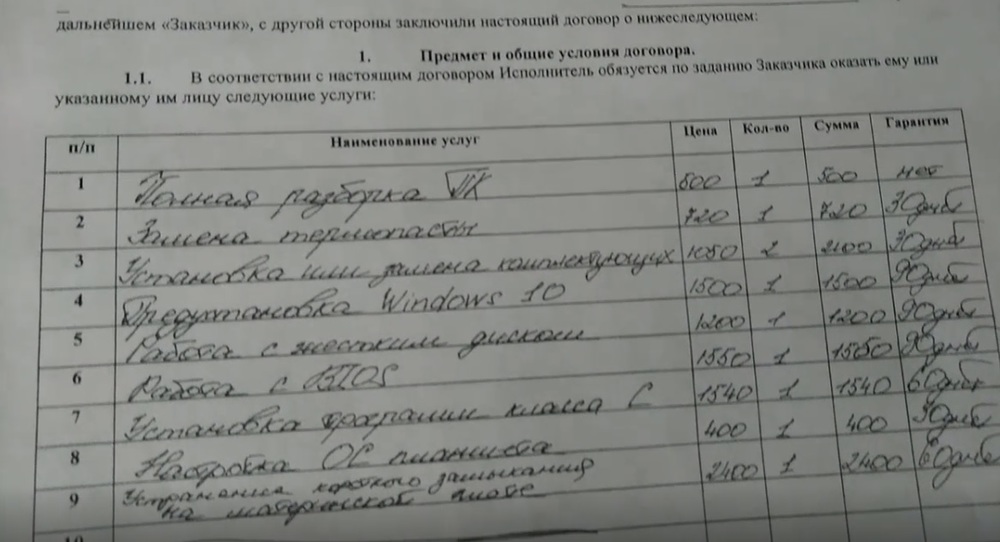 дальнейшем «Заказчик», с другой стороны заключили настоящий договор о нижеследующем:
1. Предмет и общие условия договора.
1.1. В соответствии с настоящим договором Исполнитель обязуется по заданию Заказчика оказать ему или
указанному им лицу следующие услуги:
п/п Наименование услуг Цена Кол-во Сумма Гарантия
1 Полная разборка ПК 500 1 500 нет
2 Замена термопасты 720 1 720 30дней
3 Установка или замена комплектующих 1050 2 2100 30дней
4 Предустановка Windows 10 1500 1 1500 90дней
5 Работа с жестким диском 1200 1 1200 90дней
6 Работа с BIOS 1550 1 1550 90дней
7 Установка программ класса С 1540 1 1540 60дней
8 Настройка ОС 400 1 400 30дней
9 Устранение короткого замыкания 2400 1 2400 60дней
на материнской плате
10